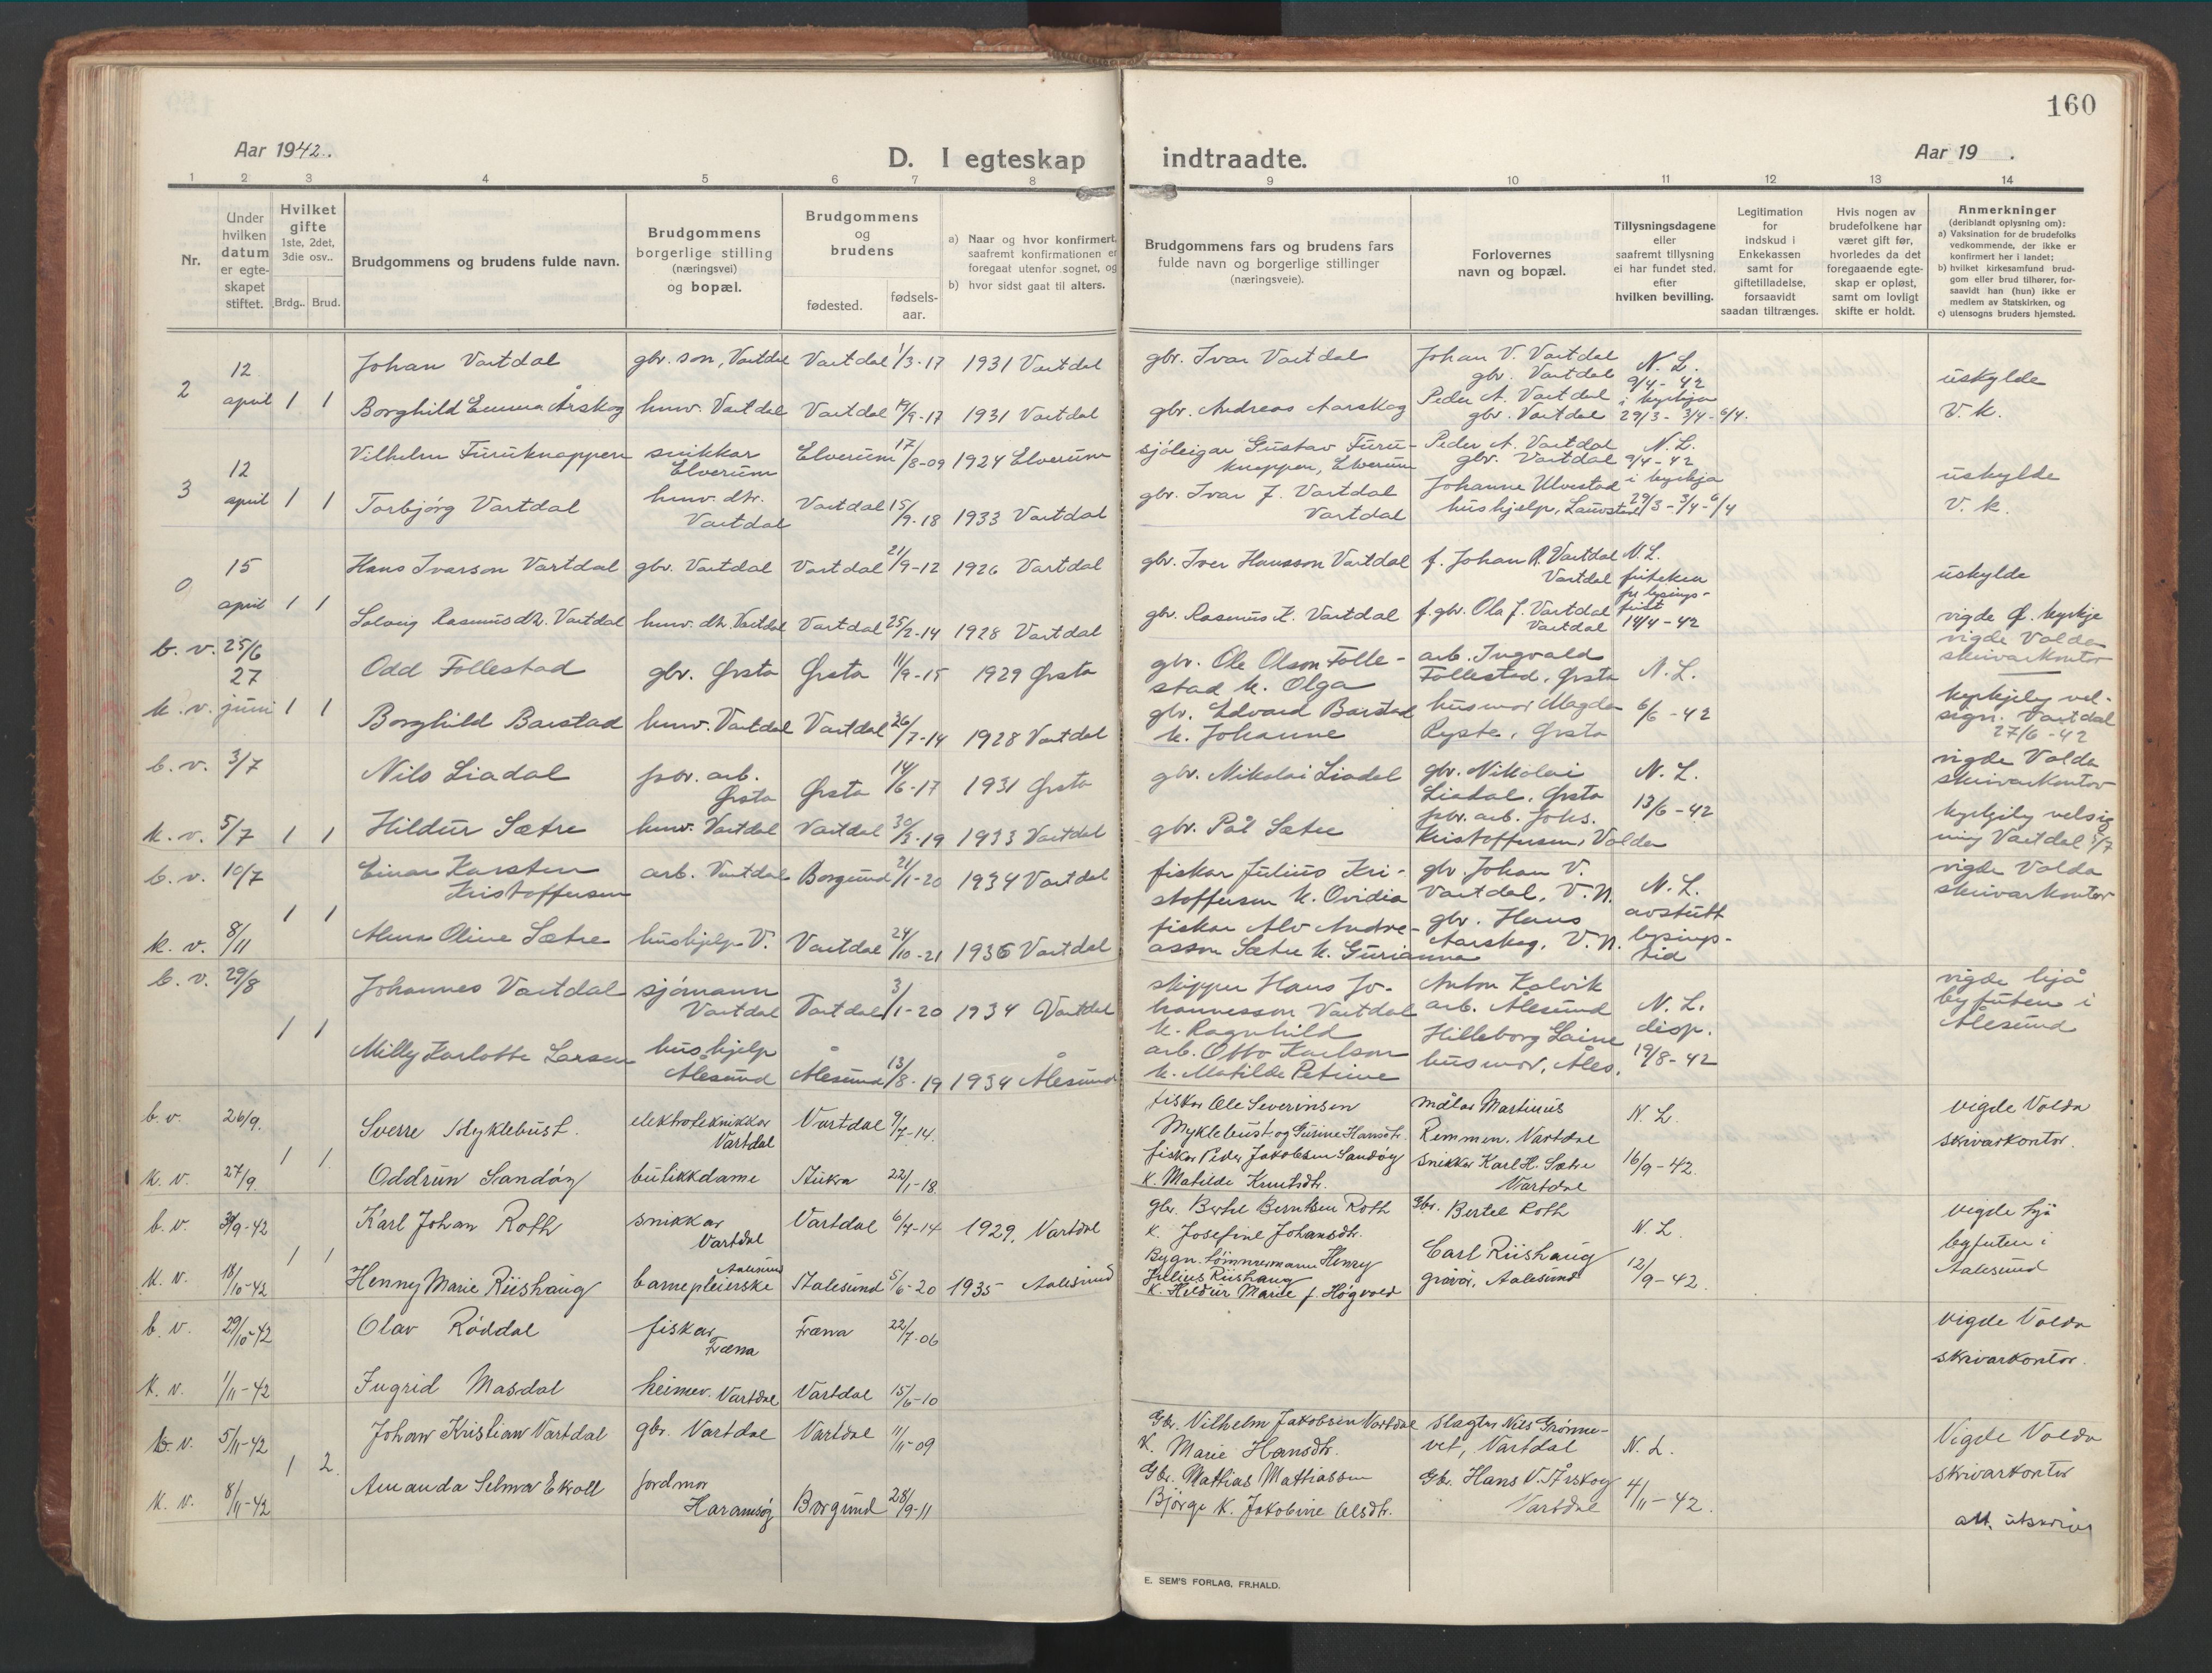 160
Aar 1942.
D. I egteskap indtraadte.
Aar 19 .
1 2 3 4 5 6 7 8 9 10 11 12 13 14
Nr.
Under hvilken datum er egte-skapet stiftet.
Hvilket gifte 1ste, 2det, 3die osv..
Brdg.. Brud.
Brudgommens og brudens fulde navn.
Brudgommens borgerlige stilling (næringsvei) og bopæl.
Brudgommens og brudens
fødested.
fødsels-aar.
a) Naar og hvor konfirmert, saafremt konfirmationen er foregaat utenfor sognet, og
b) hvor sidst gaat til alters.
Brudgommens fars og brudens fars fulde navn og borgerlige stillinger (næringsveie).
Forlovernes navn og bopæl.
Tillysningsdagene eller saafremt tillysning ei har fundet sted, efter hvilken bevilling.
Legitimation for indskud i Enkekassen samt for giftetilladelse, forsaavidt saadan tiltrænges.
Hvis nogen av brudefolkene har været gift før, hvorledes da det foregaaende egte-skap er opløst, samt om lovligt skifte er holdt.
Anmerkninger (deriblandt oplysning om):
a) Vaksination for de brudefolks vedkommende, der ikke er konfirmert her i landet;
b) hvilket kirkesamfund brud-gom eller brud tilhører, for-saavidt han (hun) ikke er medlem av Statskirken, og
c) utensogns bruders hjemsted.
2 12 april 1 1
Johan Vartdal gbr. son, Vartdal Vartdal 1/3-17 1931 Vartdal gbr. Ivar Vartdal Johan V. Vartdal gbr. Vartdal N. L. 9/4-42 uskylde
Borghild Emma Årskog hmv. Vartdal Vartdal /9-17 1931 Vartdal gbr. Andreas Aarskog Peder A. Vartdal gbr. Vartdal i kyrkja 29/3- 3/4- 6/4. V. k.
3 12 april 1 1
Vilhelm Furuknappen snikkar Elverum Elverum 17/8-09 1924 Elverum sjöleigar Gustav Furu-knappen, Elverum Peder A. Vartdal gbr. Vartdal N. L. 9/4-42 uskylde
Torbjörg Vartdal hmv. dtr. Vartdal Vartdal 15/9-18 1933 Vartdal gbr. Ivar J. Vartdal Vartdal Johanne Ulvestad hushjelp, i kyrkja 29/3- 3/4- 6/4 V. k.
0 15 april 1 1
Hans Ivarson Vartdal gbr. Vartdal Vartdal 21/9-12 1926 Vartdal gbr. Iver Hansson Vartdal f. Johan R. Vartdal Vartdal N. L. friteken uskylde
Solveig Rasmusdtr. Vartdal hmv. dtr. Vartdal Vartdal 25/2-14 1928 Vartdal gbr. Rasmus K. Vartdal f. gbr. Ola J. Vartdal Vartdal fr lysings-frist 14/4-42 vigde Ø. kyrkje
b. v. 25/6
27 juni k. v. 1 1
Odd Follestad gbr. Ørsta Ørsta 11/9-15 1929 Ørsta gbr. Ole Olson Folle-stad k. Olga arb. Ingvald Follestad, Ørsta N. L. vigde Volda skrivarkontor
Borghild Barstad hmv. Vartdal Vartdal 26/7-14 1928 Vartdal gbr. Edvard Barstad k. Johanne husmor Magda Ryste, Ørsta 6/6-42 kyrkjeleg vel-sign. Vartdal 27/6-42
b. v. 3/7
k. v. 5/7 1 1
Nils Liadal fbr. arb. Ørsta Ørsta 14/6-17 1931 Ørsta gbr. Nikolai Liadal gbr. Nikolai Liadal, Ørsta N. L. vigde Volda skrivarkontor
Hildur Sætre hmv. Vartdal Vartdal 30/3-19 1933 Vartdal gbr. Pål Sætre fbr. arb. Johs. Kristoffersen, Volda 13/6-42 kyrkjeleg velsig ning Vartdal 5/7
b. v. 10/7
k. v. 8/11 1 1
Einar Karsten Kristoffersen arb. Vartdal Borgund 21/1-20 1934 Vartdal fiskar Julius Kri-stoffersen k. Ovidia gbr. Johan V. Vartdal, V. N. N. L. avstutt vigde Volda skrivarkontor
Alma Oline Sætre hushjelp V. Vartdal 24/10-21 1936 Vartdal fiskar Alv Andre-asson Sætre k. Gurianna gbr. Hans Aarskog, V. N. lysings-tid
b. v. 29/8 1 1
Johannes Vartdal sjömann Vartdal Vartdal 3/1-20 1934 Vartdal skipper Hans Jo-hannesson Vartdal k. Ragnhild Anton Kalvik arb. Ålesund N. L. disp. vigde hjå byfuten i Ålesund
Milly Karlotte Larsen hushjelp Ålesund Ålesund 13/8-19 1934 Ålesund arb. Otto Karlson k. Matilde Petrine Hilleborg Laine husmor, Åles. 19/8-42
b. v. 26/9.
k. v. 27/9. 1 1.
Sverre Myklebust. elektroteknikkar Vartdal Vartdal 9/7-14. fiskar Ole Severinsen Myklebust og Gurine Hansdtr. målar Martinus Remmen, Vartdal N. L. vigde Volda skrivarkontor.
Oddrun Sandöy butikkdame Aukra 22/1-18. fiskar Peder Jakobsen Sandöy k. Matilde Knutsdtr. snikkar Karl H. Sætre Vartdal 16/9-42.
b. v. 30/9-42
k. v. 18/10-42 1 1
Karl Johan Roth snikkar Vartdal Vartdal 6/7-14 1929. Vartdal gbr. Bertel Berntsen Roth k. Josefine Johansdtr. Gbr. Bertel Roth N. L. vigde hjå byfuten i Aalesund
Henny Marie Riishaug barnepleierske Aalesund Aalesund 5/6-20 1935 Aalesund Bygn. tömmermann Henry Julius Riishaug k. Hildur Marie f. Høgvold Carl Riishaug gravör, Aalesund 12/9-42.
b. v. 29/10-42
k. v. 1/11-42
Olav Röddal fiskar Fræna Fræna 22/7-06 vigde Volda skrivarkontor.
Ingrid Masdal heimev. Vartdal Vartdal 15/6-10
b. v. 5/11-42
k. v. 8/11-42 1 2.
Johan Kristian Vartdal gbr. Vartdal Vartdal 11/11-09 Gbr. Vilhelm Jakobsen Vartdal k. Marie Hansdtr. Slagter Nils Grönne-vet, Vartdal N. L. Vigde Volda skrivarkontor
Amanda Selma Ekroll jordmor Haramsöy Borgund 28/9-11 Gbr. Mathias Mathiassen Björge k. Jakobine Olsdtr. Gbr. Hans V. Årskog Vartdal 4/11-42. att. utskrive
E. SEM'S FORLAG, FR.HALD.